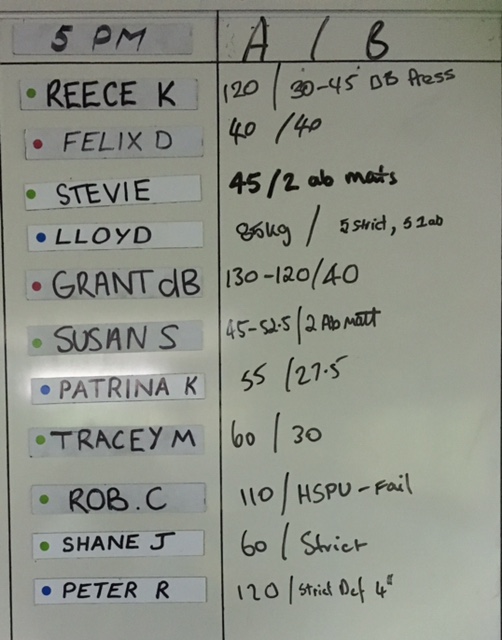 5 PM A / B
REECE K 120 / 30-45 DB Press
FELIX D 40 / 40
STEVIE 45/2 ab mats
LLOYD 85kg / 5 strict, 5 1ab
GRANT dB 130-120/40
SUSAN S 45-52.5/2 Ab Matt
PATRINA K 55 / 27.5
TRACEY M 60 / 30
ROB.C 110 / HSPU-Fail
SHANE J 60 / Strict
PETER R 120 / Strict Def 4"